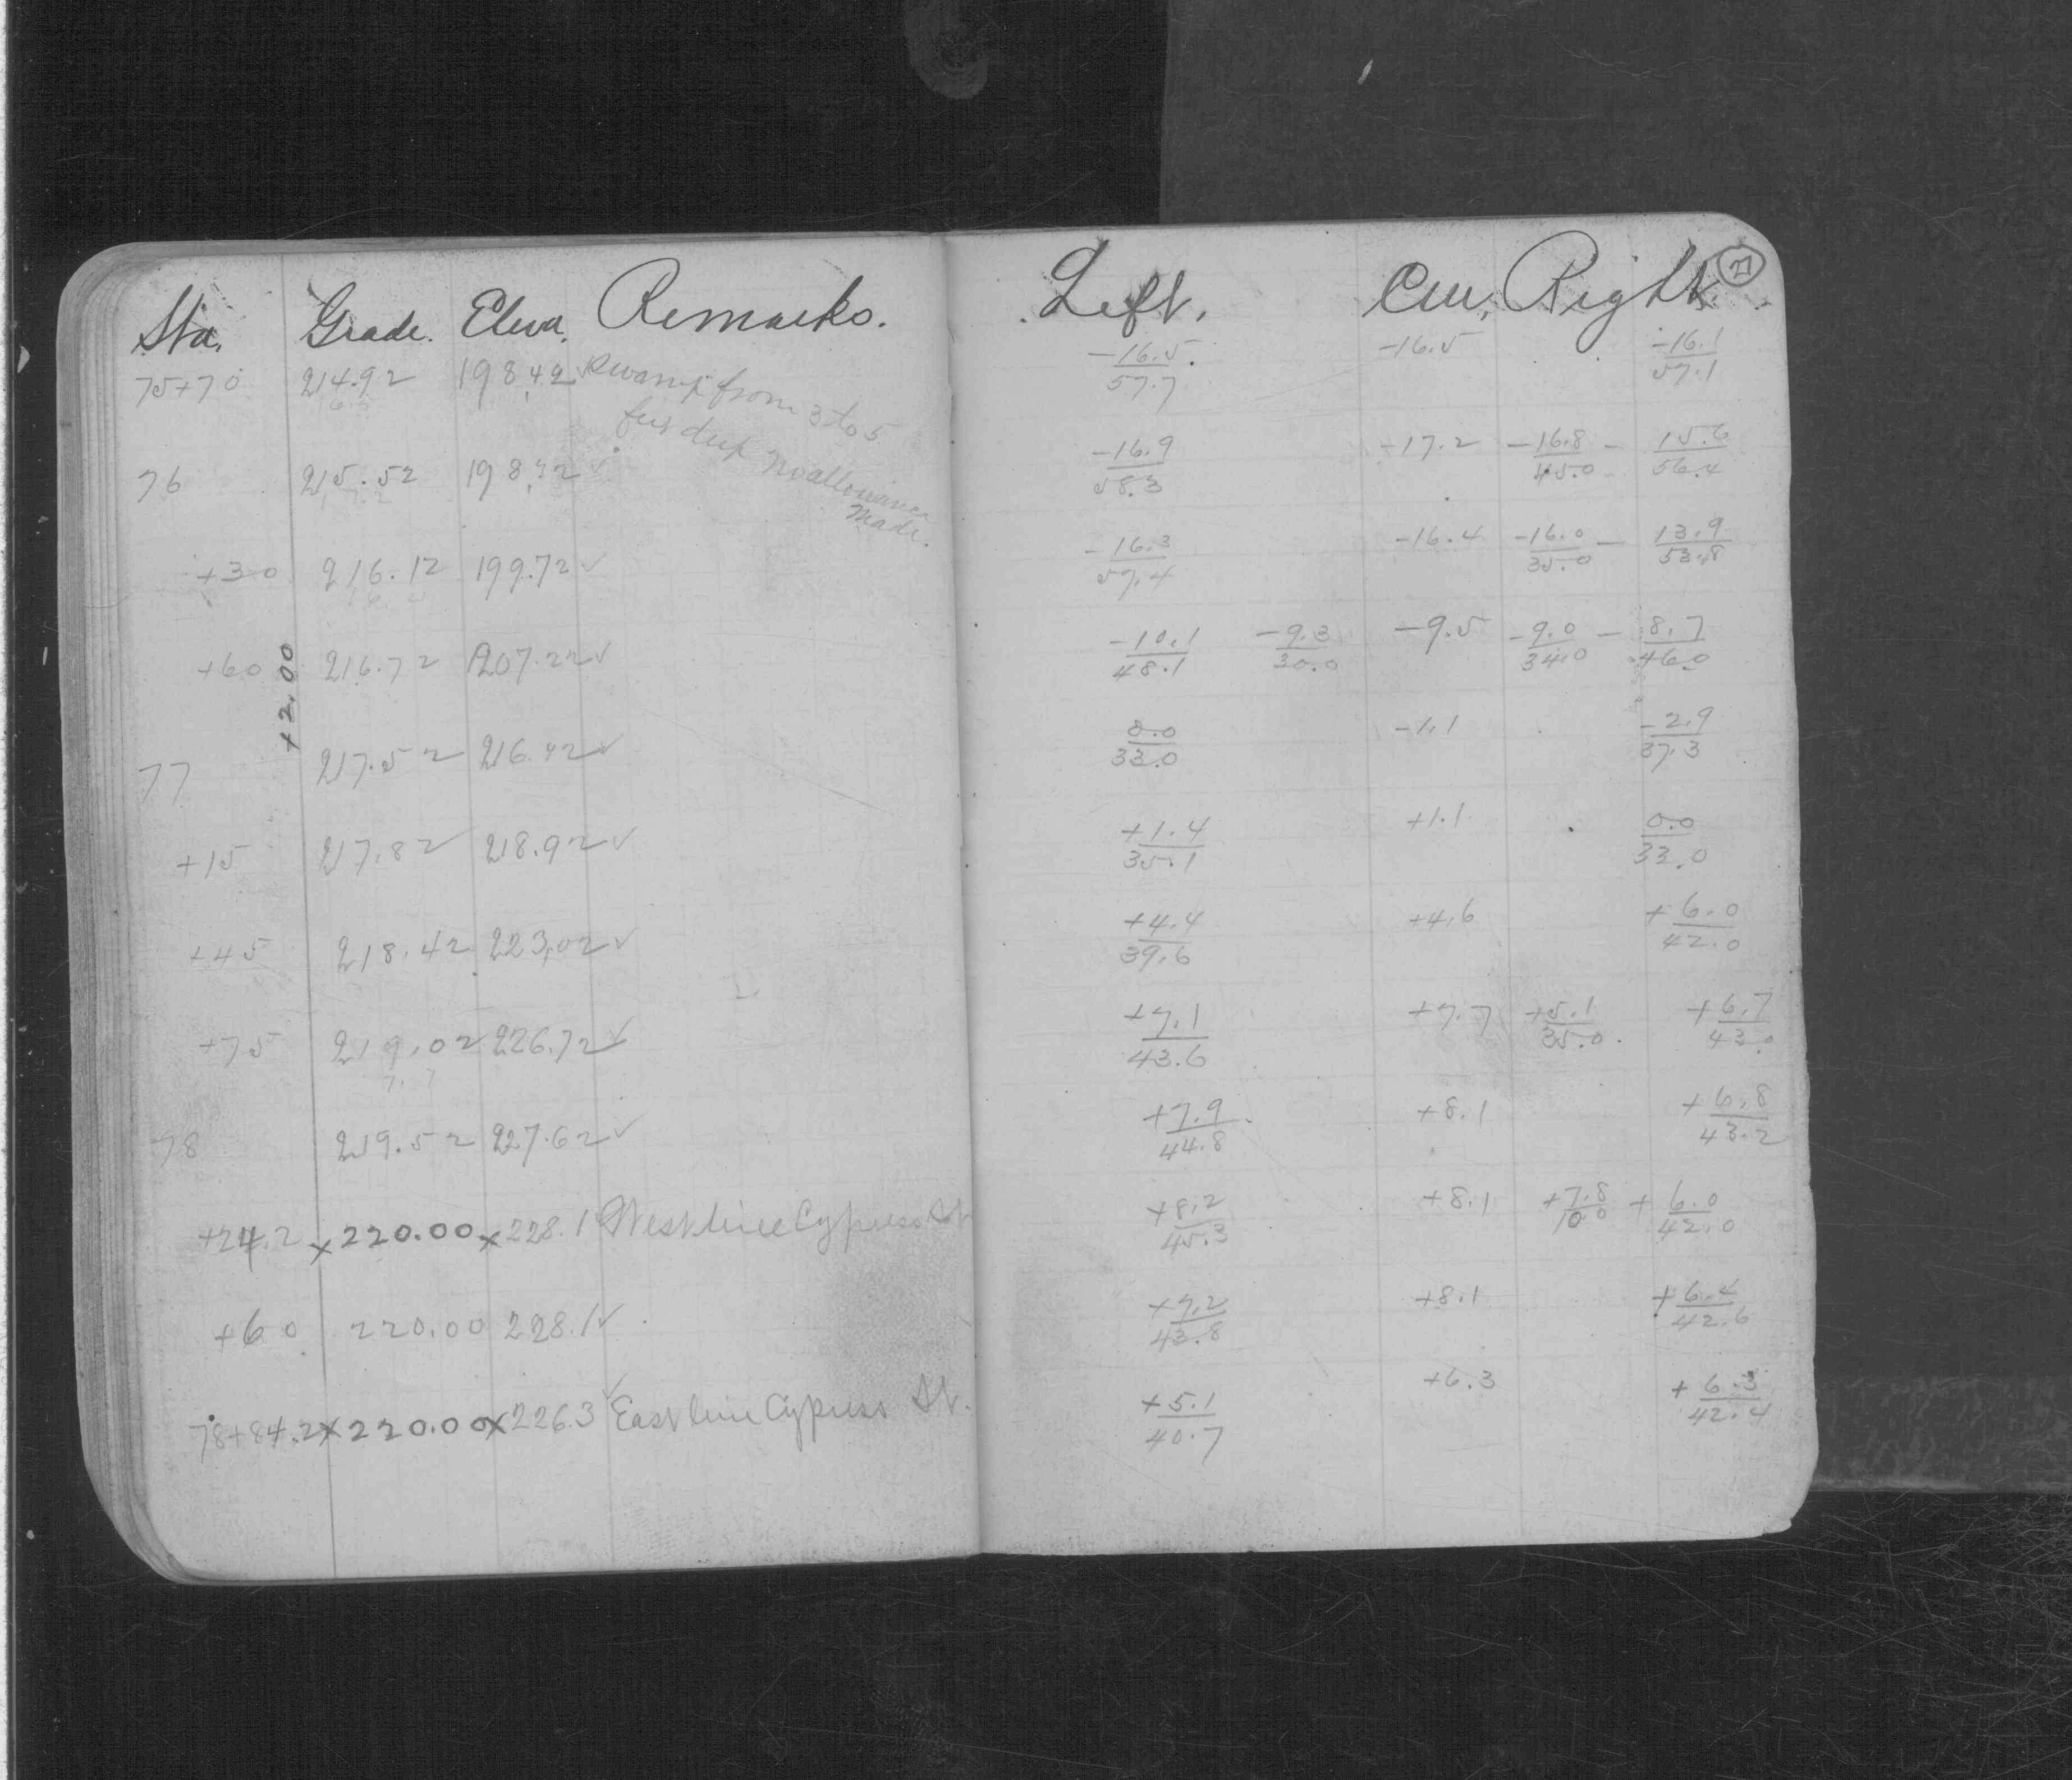 Sta. Grade. Eleva. Remarks. Left. Cen. Right. 21
75+70 214.92 198.42 ✓ Swamp from 3 to 5 -16.5/57.7 -16.5 -16.1/57.1
feet deep No allowance
Made.
76 215.52 198.32 ✓ -16.9/58.3 -17.2 -16.8/45.0 -15.6/56.4
+30 216.12 199.72 ✓ -16.3/57.4 -16.4 -16.0/35.0 -13.9/53.8
+60 216.72 207.22 ✓ -10.1/48.1 -9.3/30.0 -9.5 -9.0/34.0 -8.7/46.0
+2.00
77 217.52 216.42 ✓ 0.0/33.0 -1.1 -2.9/37.3
+15 217.82 218.92 ✓ +1.4/35.1 +1.1 0.0/33.0
+45 218.42 223.02 ✓ +4.4/39.6 +4.6 +6.0/42.0
+75 219.02 226.72 ✓ +7.1/43.6 +7.7 +5.1/35.0 +6.7/43.0
7.7
78 219.52 227.62 ✓ +7.9/44.8 +8.1 +6.8/43.2
+24.2 x 220.00 x 228.1 West line Cypress St. +8.2/45.3 +8.1 +7.8/10.0 +6.0/42.0
+60 220.00 228.1 ✓ +7.2/43.8 +8.1 +6.4/42.6
78+84.2 x 220.00 x 226.3 ✓ East line Cypress St. +5.1/40.7 +6.3 +6.3/42.4